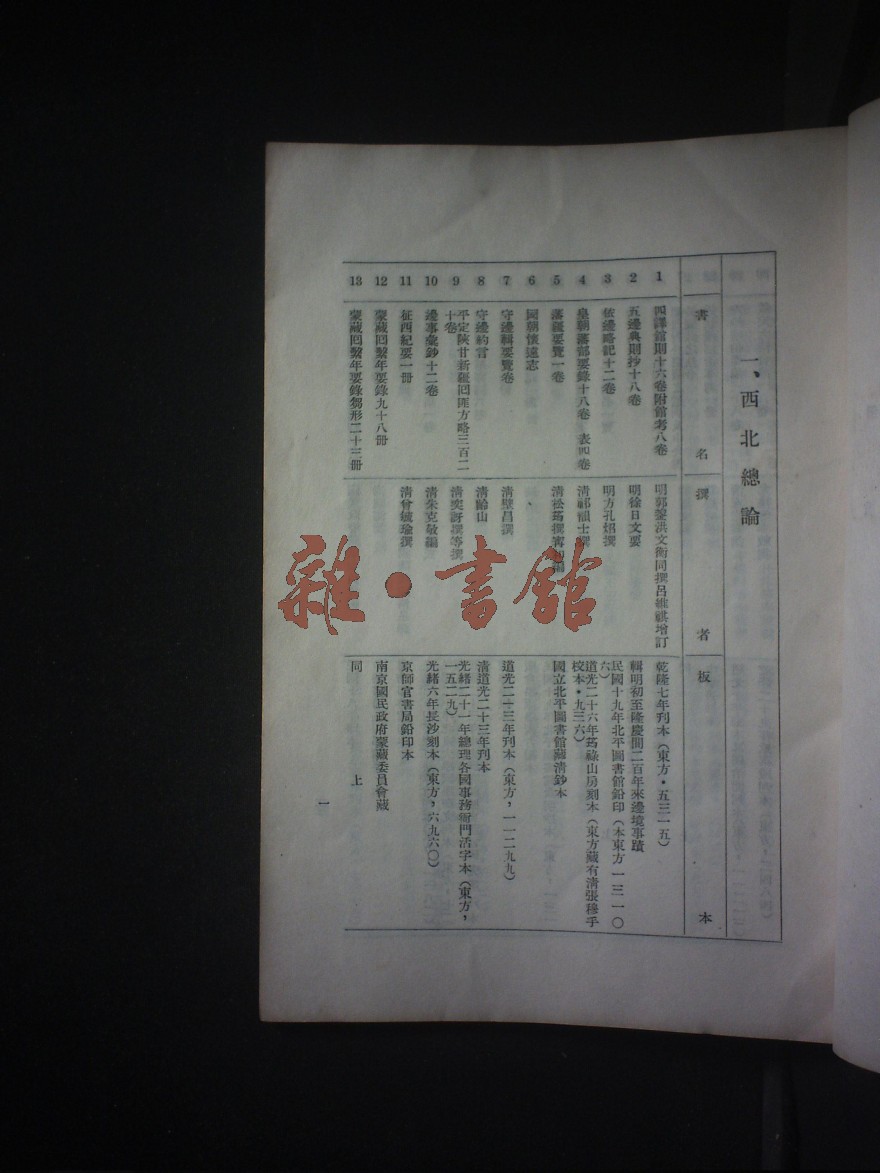 一、西北總論
書名 撰者 板本
1 四譯館則十六卷附館考八卷 明郭鋆洪文衡同撰呂維祺增訂 乾隆七年刊本（東方·五三一五）
2 五邊典則抄十八卷 明徐日文要 輯明初至隆慶間二百年來邊境事蹟
3 全邊略記十二卷 明方孔炤撰 民國十九年北平圖書館鉛印（本東方一三一〇
六）
4 皇朝藩部要錄十八卷 表四卷 清祁韻士撰 道光二十六年筠祿山房刻本（東方藏有清張穆手
校本·九三六）
5 藩疆要覽一卷 清松筠撰 國立北平圖書館藏清鈔本
6 國朝懷遠志
7 守邊輯要覽卷 清壁昌撰 道光二十三年刊本（東方，一一二九九）
8 守邊約言 清齡山 清道光二十三年刊本
9 平定陝甘新疆回匪方略三百二
十卷 清奕訢撰等撰 光緒二十一年總理各國事務衙門活字本（東方，
一五二九）
10 邊事彙鈔十二卷 清朱克敬編 光緒六年長沙刻本（東方，六九六〇）
11 征西紀要一冊 清曾毓瑜撰 京師官書局鉛印本
12 蒙藏回繫年要錄九十八冊 南京國民政府蒙藏委員會藏
13 蒙藏回繫年要錄芻形二十三冊 同上
一
雜·書館